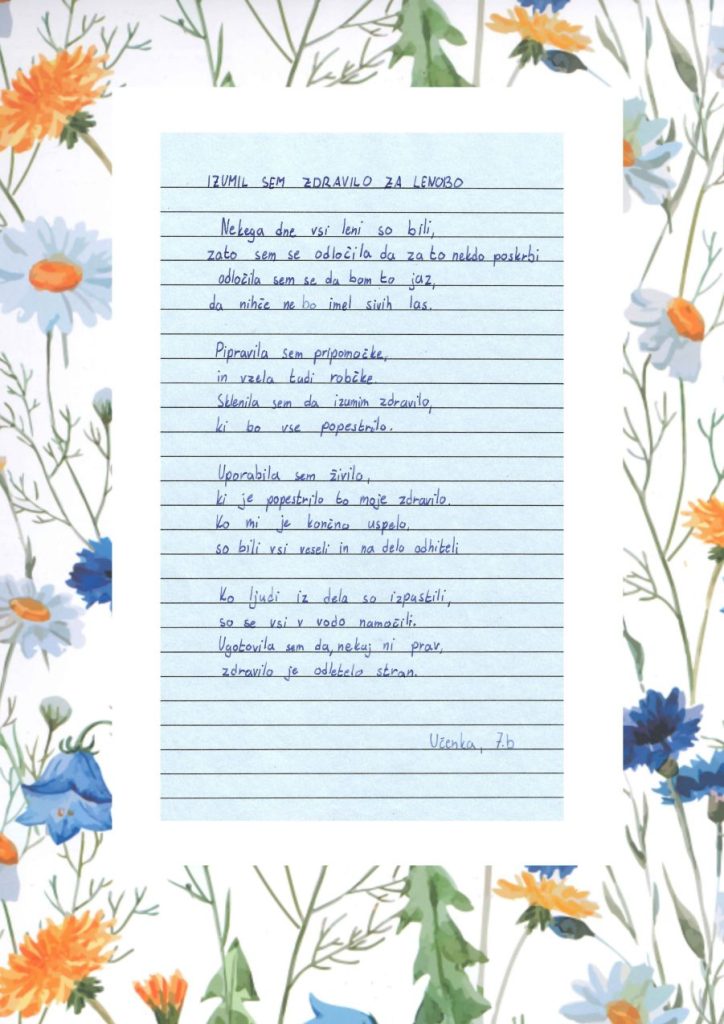 IZUMIL SEM ZDRAVILO ZA LENOBO
Nekega dne vsi leni so bili,
zato sem se odločila da za to nekdo poskrbi
odločila sem se da bom to jaz,
da nihče ne bo imel sivih las.
Pipravila sem pripomočke,
in vzela tudi robčke.
Sklenila sem da izumim zdravilo,
ki bo vse popestrilo.
Uporabila sem živilo,
ki je popestrilo to moje zdravilo.
Ko mi je končno uspelo,
so bili vsi veseli in na delo odhiteli
Ko ljudi iz dela so izpustili,
so se vsi v vodo namočili.
Ugotovila sem da, nekaj ni prav,
zdravilo je odletelo stran.
Učenka, 7.b